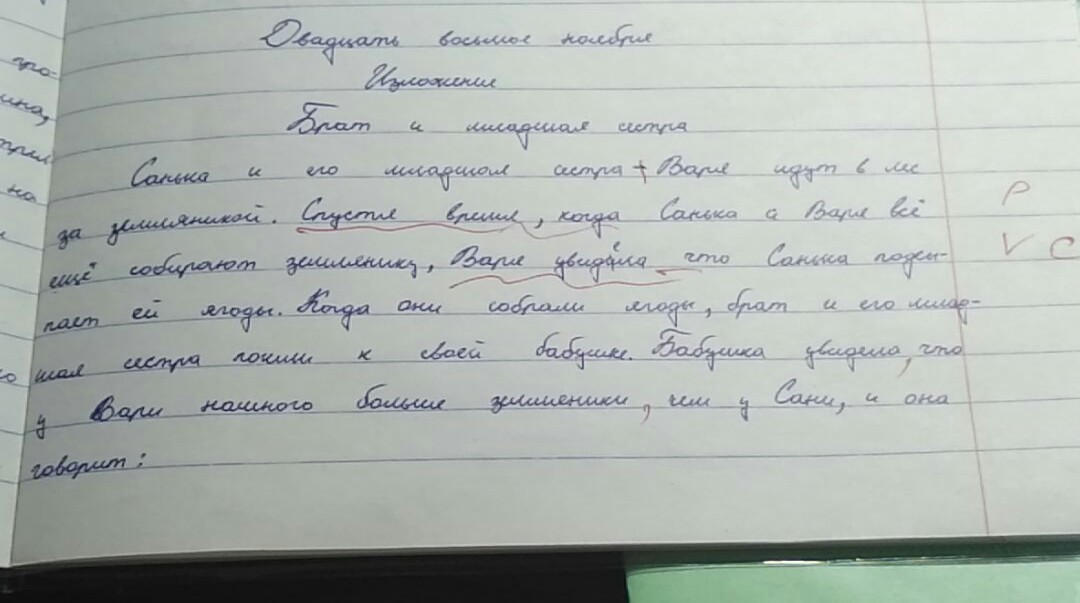 Двадцать восьмое ноября
Изложение
Брат и младшая сестра
Санька и его младшая сестра + Варя идут в лес
за земляникой. Спустя время, когда Санька и Варя всё
ещё собирают землянику, Варя увидела что Санька подсы-
пает ей ягоды. Когда они собрали ягоды, брат и его млад-
шая сестра пошли к своей бабушке. Бабушка увидела, что
у Вари намного больше земляники, чем у Сани, и она
говорит:
Р
V С
на